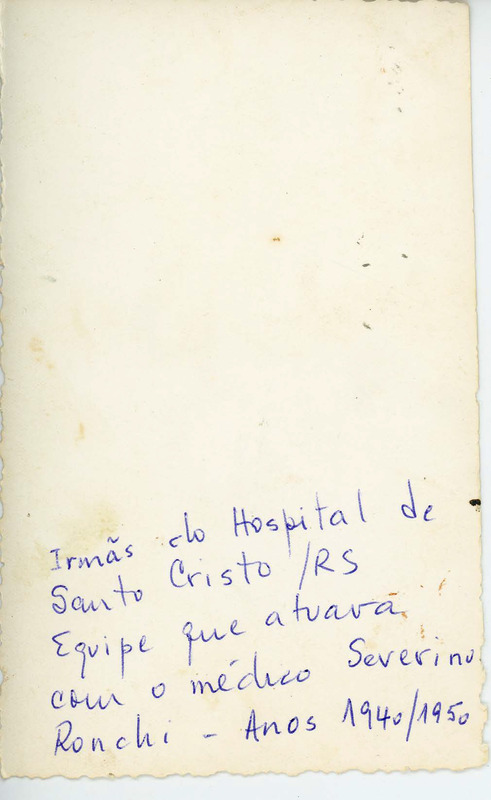 Irmãs do Hospital de
Santo Cristo /RS
Equipe que atuava
com o médico Severino
Ronchi - Anos 1940/1950